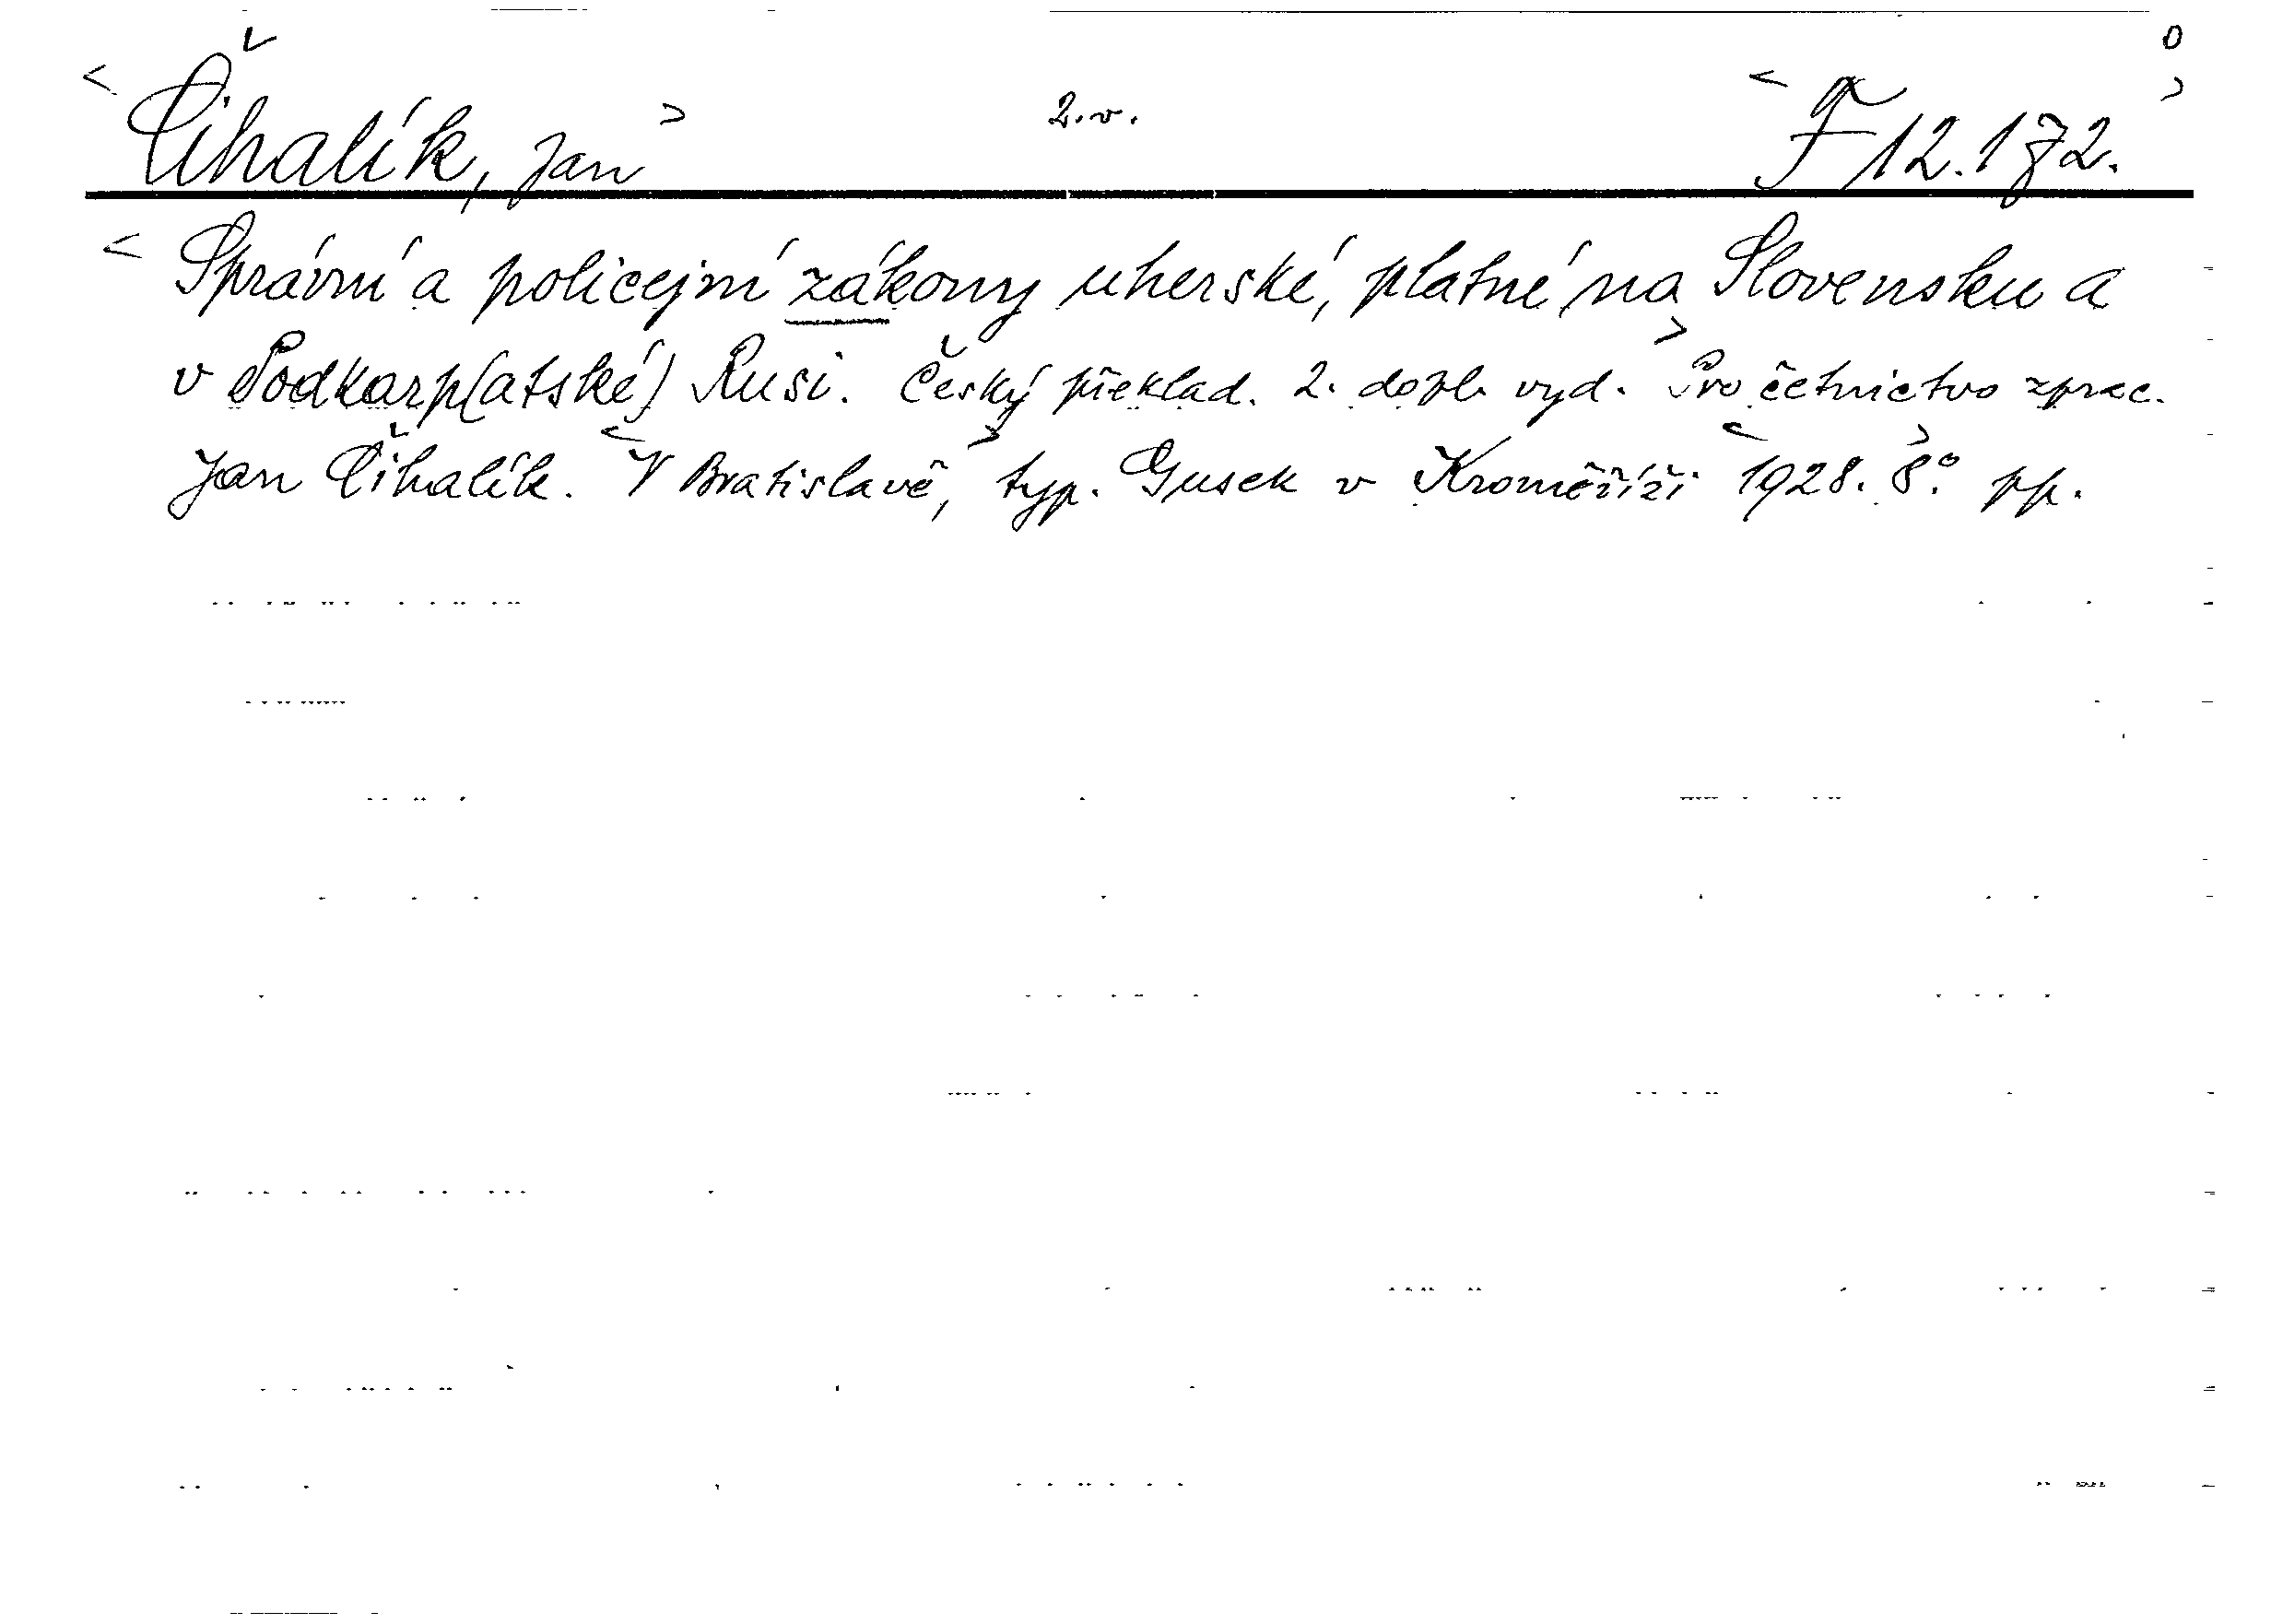 < Čihalík, Jan > 2. v. < F 12.172. >
< Správní a policejní zákony uherské, platné na Slovensku a
v Podkarp(atské) Rusi. Český překlad. 2. dopl. vyd. > Pro četnictvo zprac.
Jan Čihalík. < V Bratislavě, > typ. Gusek v Kroměříži < 1928. > 8°. pp.